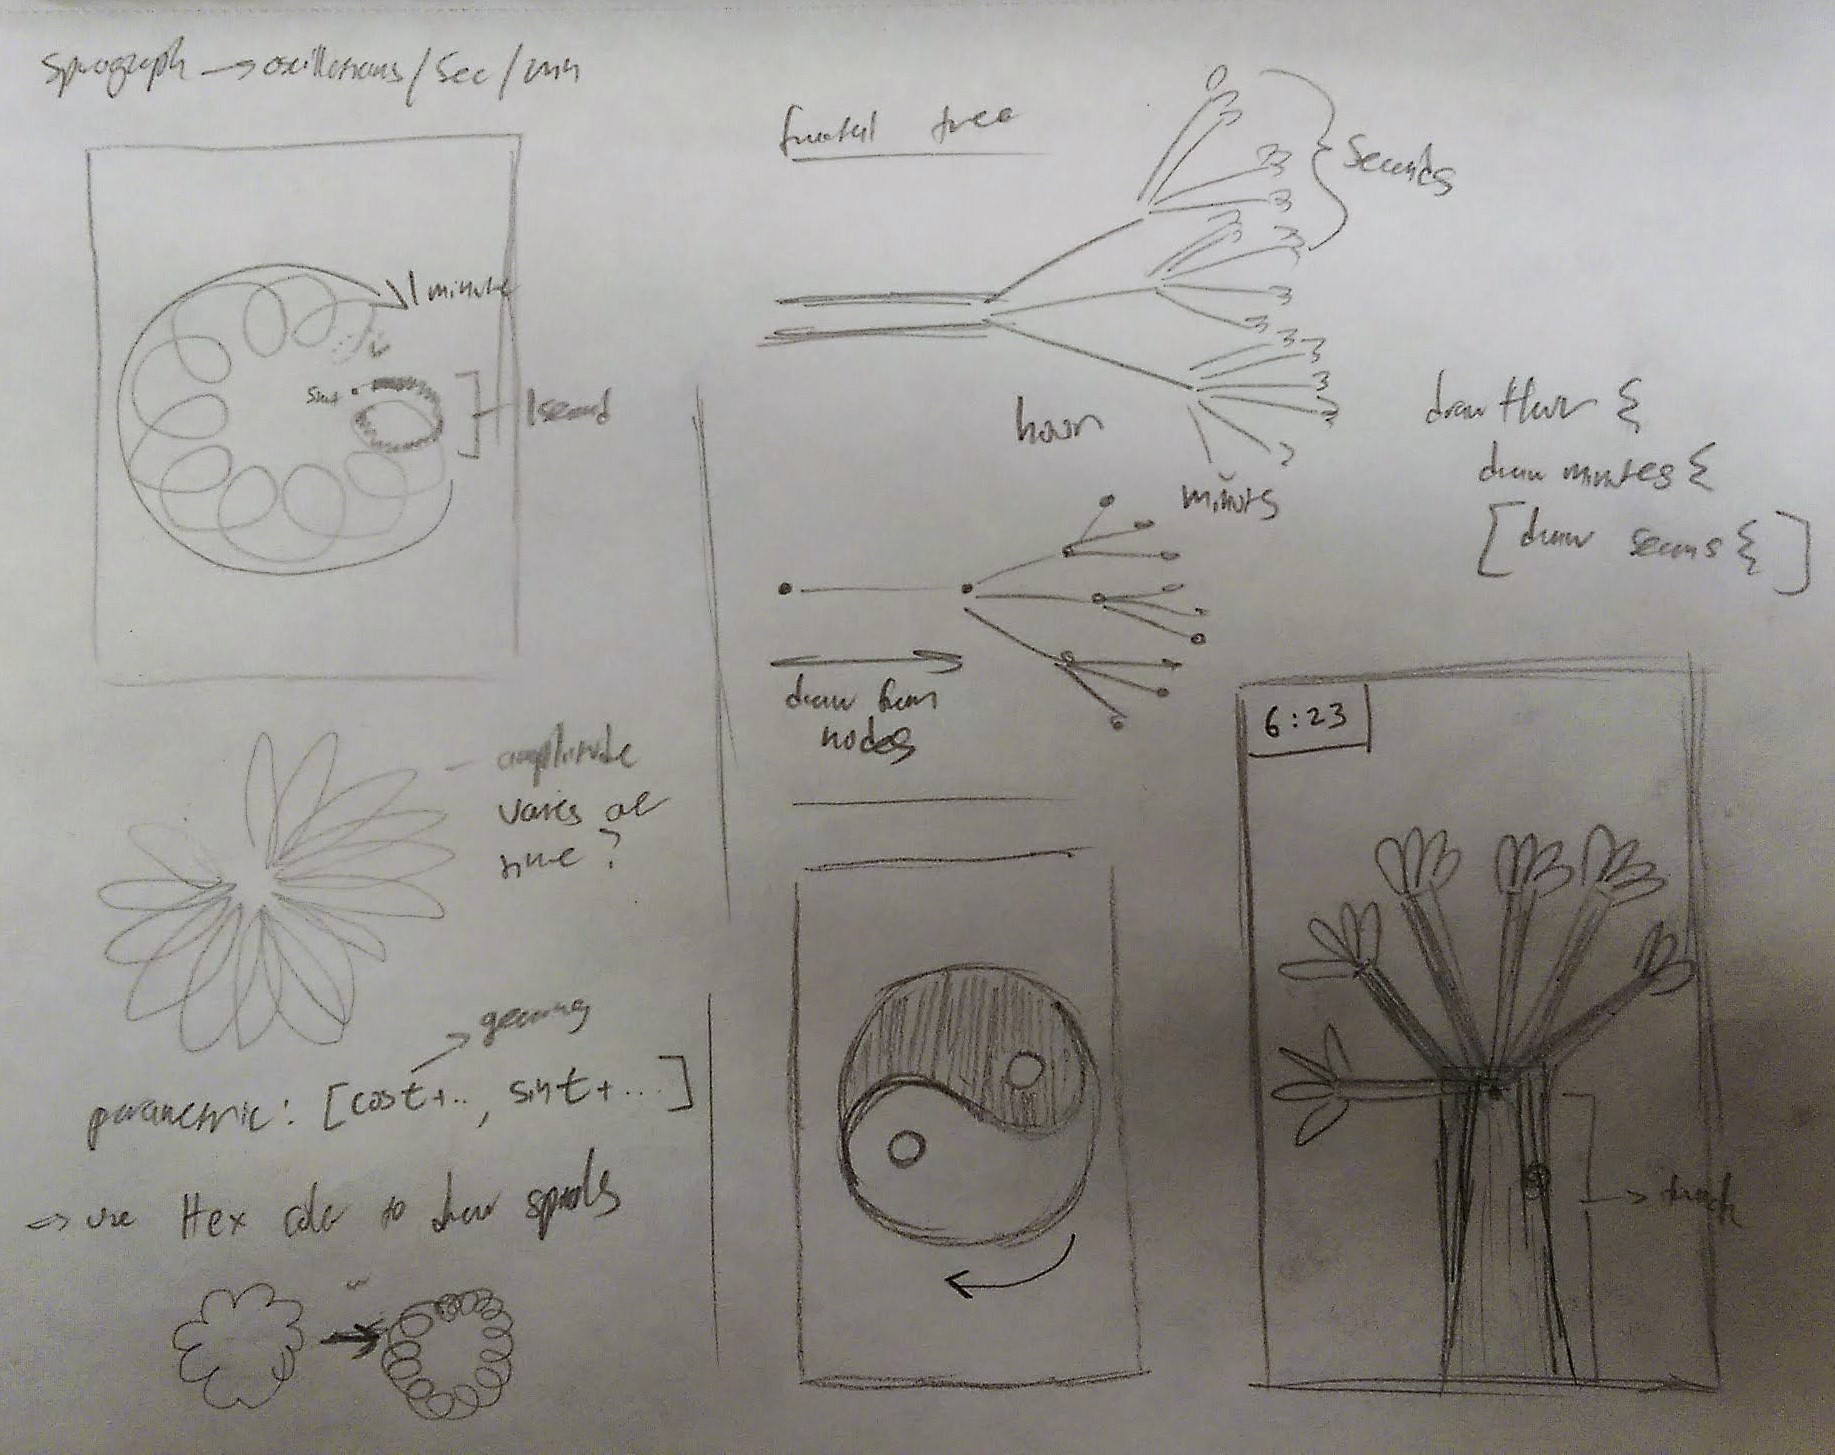 Spirograph → oscillations/sec/min
1 minute
start
1 second
amplitude
varies at
time?
parametric: [cost+.., sint+...]
→ use Hex color to draw spirals
fractal tree
seconds
hour
minutes
draw from
nodes
draw Hour {
draw minutes {
[draw seconds {]
6:23